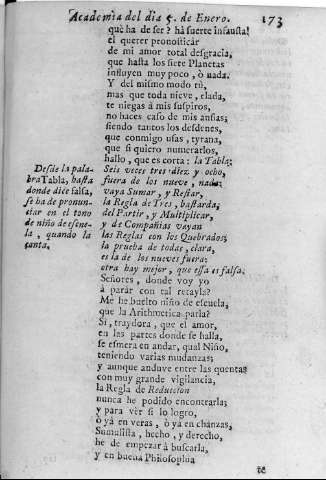 Academia del dia 5. de Enero. 173
què ha de ser? hà suerte infausta!
el querer pronosticar
de mi amor total desgracia,
que hasta los siete Planetas
influyen muy poco, ò nada.
Y del mismo modo tù,
mas que toda nieve, elada,
te niegas à mis suspiros,
no haces caso de mis ansias;
siendo tantos los desdenes,
que conmigo usas, tyrana,
que si quiero numerarlos,
hallo, que es corta: la Tabla;
Seis veces tres diez y ocho,
fuera de los nueve, nada;
vaya Sumar, y Restar,
la Regla de Tres, bastarda,
del Partir, y Multiplicar,
y de Compañias vayan
las Reglas con los Quebrados;
la prueba de todas, clara,
es la de los nueves fuera;
otra hay mejor, que essa es falsa.
Señores, donde voy yo
à parar con tal recayla?
Me he buelto niño de escuela,
que la Arithmetica parla?
Si, traydora, que el amor,
en las partes donde se halla,
se esmera en andar, qual Niño,
teniendo varias mudanzas;
y aunque anduve entre las quentas
con muy grande vigilancia,
la Regla de Reduccion
nunca he podido encontrarla;
y para vèr si lo logro,
ò yà en veras, ò yà en chanzas,
Sumulista, hecho, y derecho,
he de empezar à buscarla,
y en buena Philosophia
Desde la pala-
bra Tabla, hasta
donde dice falsa,
se ha de pronun-
ciar en el tono
de niño de escue-
la, quando la
canta.